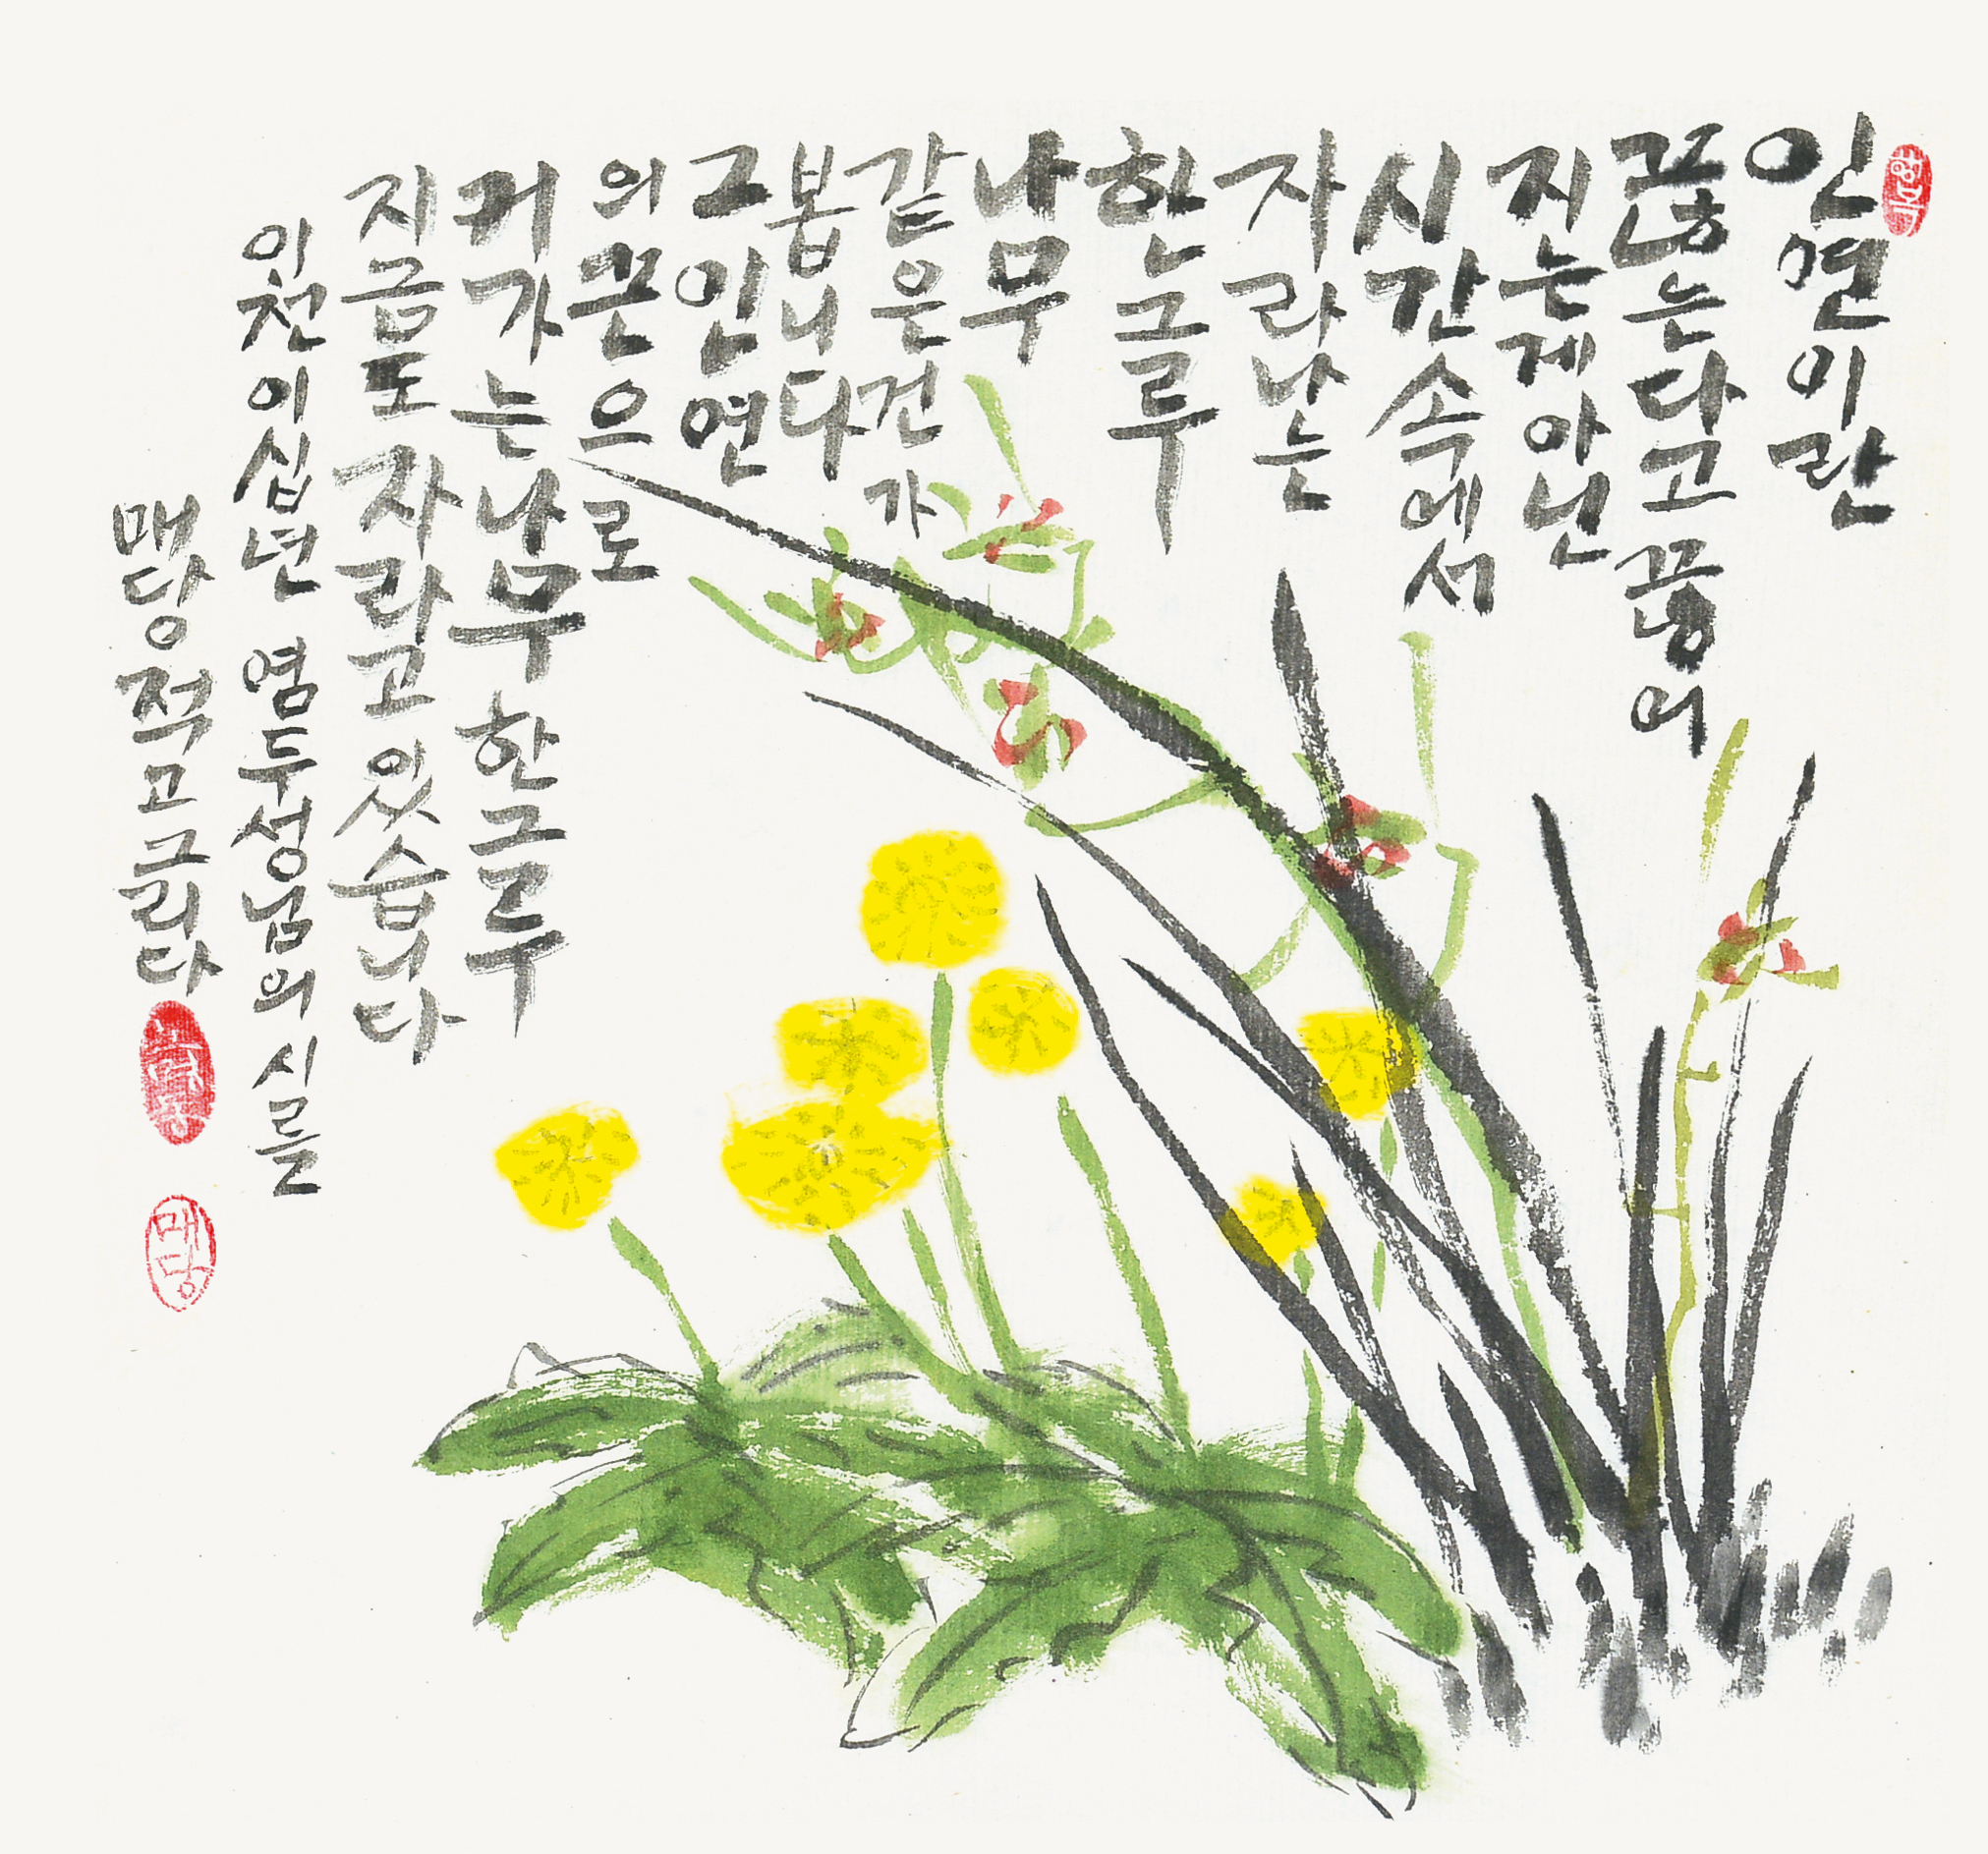 인연이란
끊는다고 끊어
지는게 아닌
시간 속에서
자라나는
한그루
나무
같은 건가
봅니다
그 인연
의 끈으로
커가는 나무 한그루
지금도 자라고 있습니다
이천이십년 염두성님의 시를
매당 적고 그리다
매당